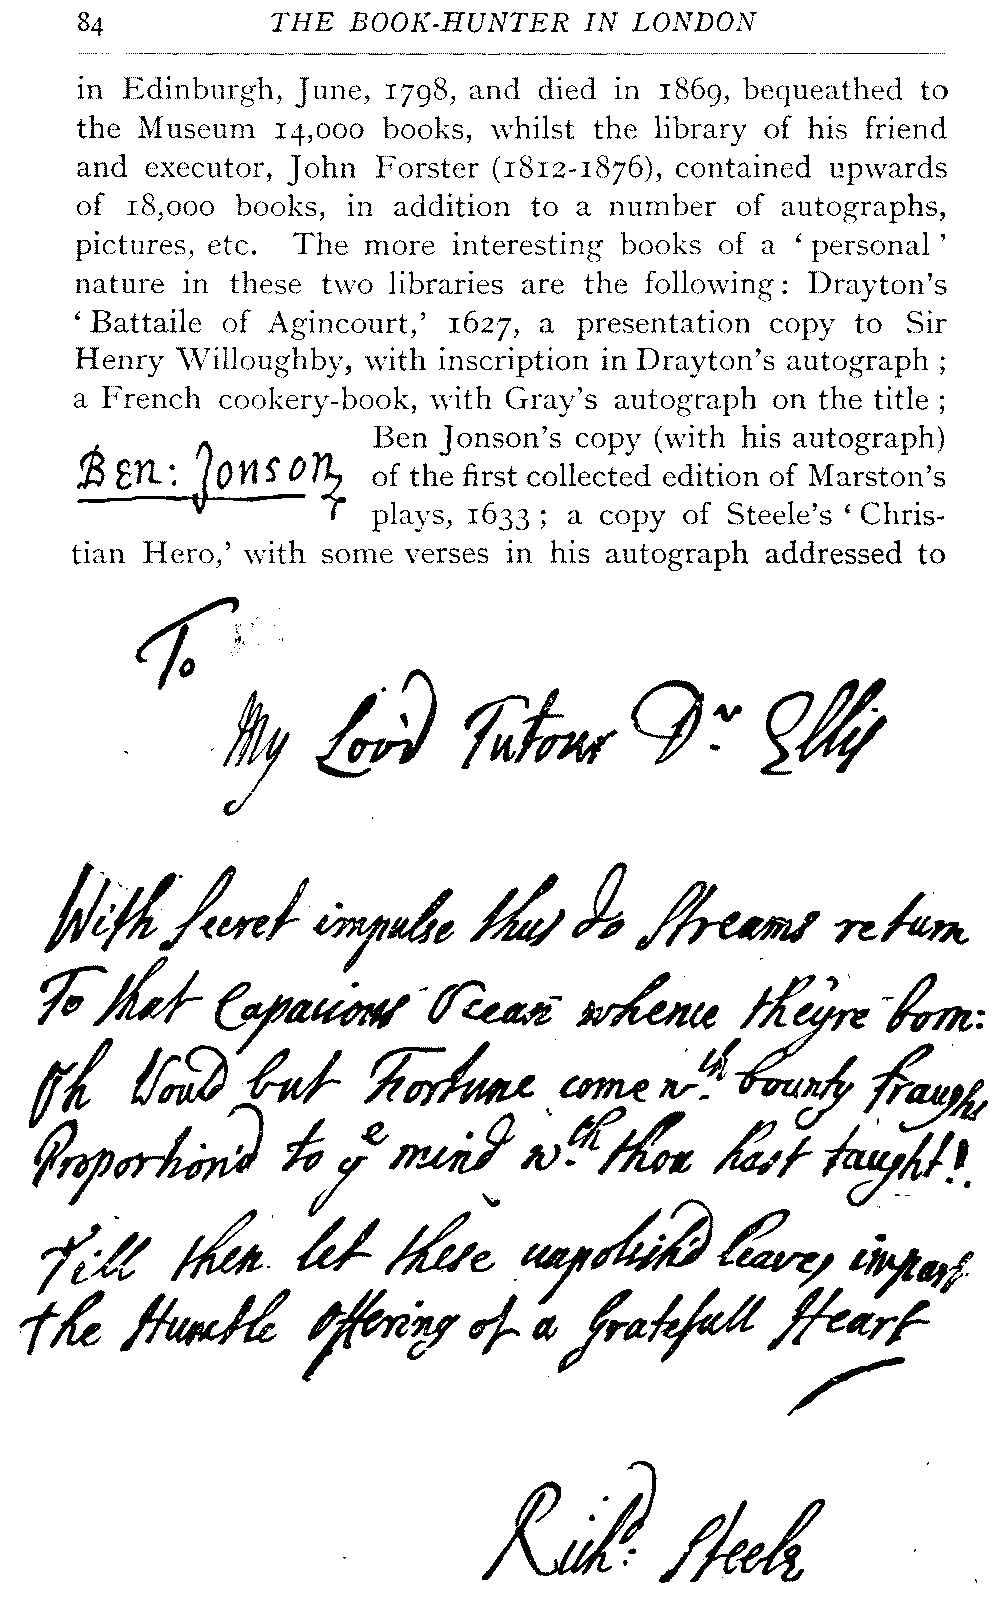 84 THE BOOK-HUNTER IN LONDON
in Edinburgh, June, 1798, and died in 1869, bequeathed to
the Museum 14,000 books, whilst the library of his friend
and executor, John Forster (1812-1876), contained upwards
of 18,000 books, in addition to a number of autographs,
pictures, etc. The more interesting books of a ‘personal’
nature in these two libraries are the following: Drayton’s
‘Battaile of Agincourt,’ 1627, a presentation copy to Sir
Henry Willoughby, with inscription in Drayton’s autograph;
a French cookery-book, with Gray’s autograph on the title;
Ben Jonson’s copy (with his autograph)
Ben: Jonson
of the first collected edition of Marston’s
plays, 1633; a copy of Steele’s ‘Chris-
tian Hero,’ with some verses in his autograph addressed to
To
My Lov'd Tutour Dr. Ellis
With Secret impulse thus do Streams return
To that Capacious Ocean whence they're born:
Oh Would but Fortune come wth. bounty fraught
Proportion'd to ye mind wch. thou hast taught!
Till then let these unpolish'd leaves impart
the Humble Offering of a Gratefull Heart
Richd: Steele